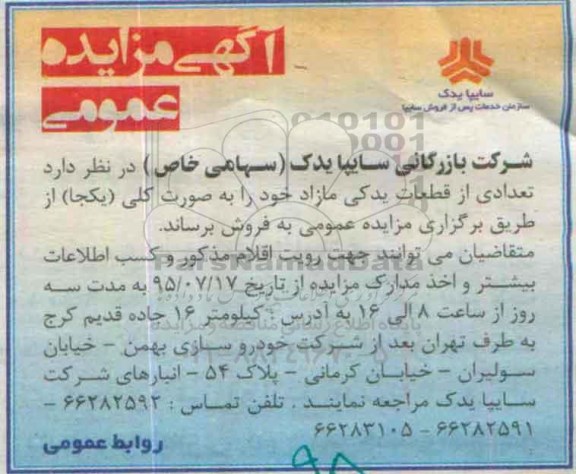 آگهی مزایده
عمومی
سایپا یدک
سازمان خدمات پس از فروش سایپا
شرکت بازرگانی سایپا یدک (سهامی خاص) در نظر دارد
تعدادی از قطعات یدکی مازاد خود را به صورت کلی (یکجا) از
طریق برگزاری مزایده عمومی به فروش برساند.
متقاضیان می توانند جهت رویت اقلام مذکور و کسب اطلاعات
بیشتر و اخذ مدارک مزایده از تاریخ ۹۵/۰۷/۱۷ به مدت سه
روز از ساعت ۸ الی ۱۶ به آدرس : کیلومتر ۱۶ جاده قدیم کرج
به طرف تهران بعد از شرکت خودرو سازی بهمن - خیابان
سولیران - خیابان کرمانی - پلاک ۵۴ - انبارهای شرکت
سایپا یدک مراجعه نمایند . تلفن تماس : ۶۶۲۸۲۵۹۲ -
۶۶۲۸۲۵۹۱ - ۶۶۲۸۳۱۰۵
روابط عمومی
ParsNamadData